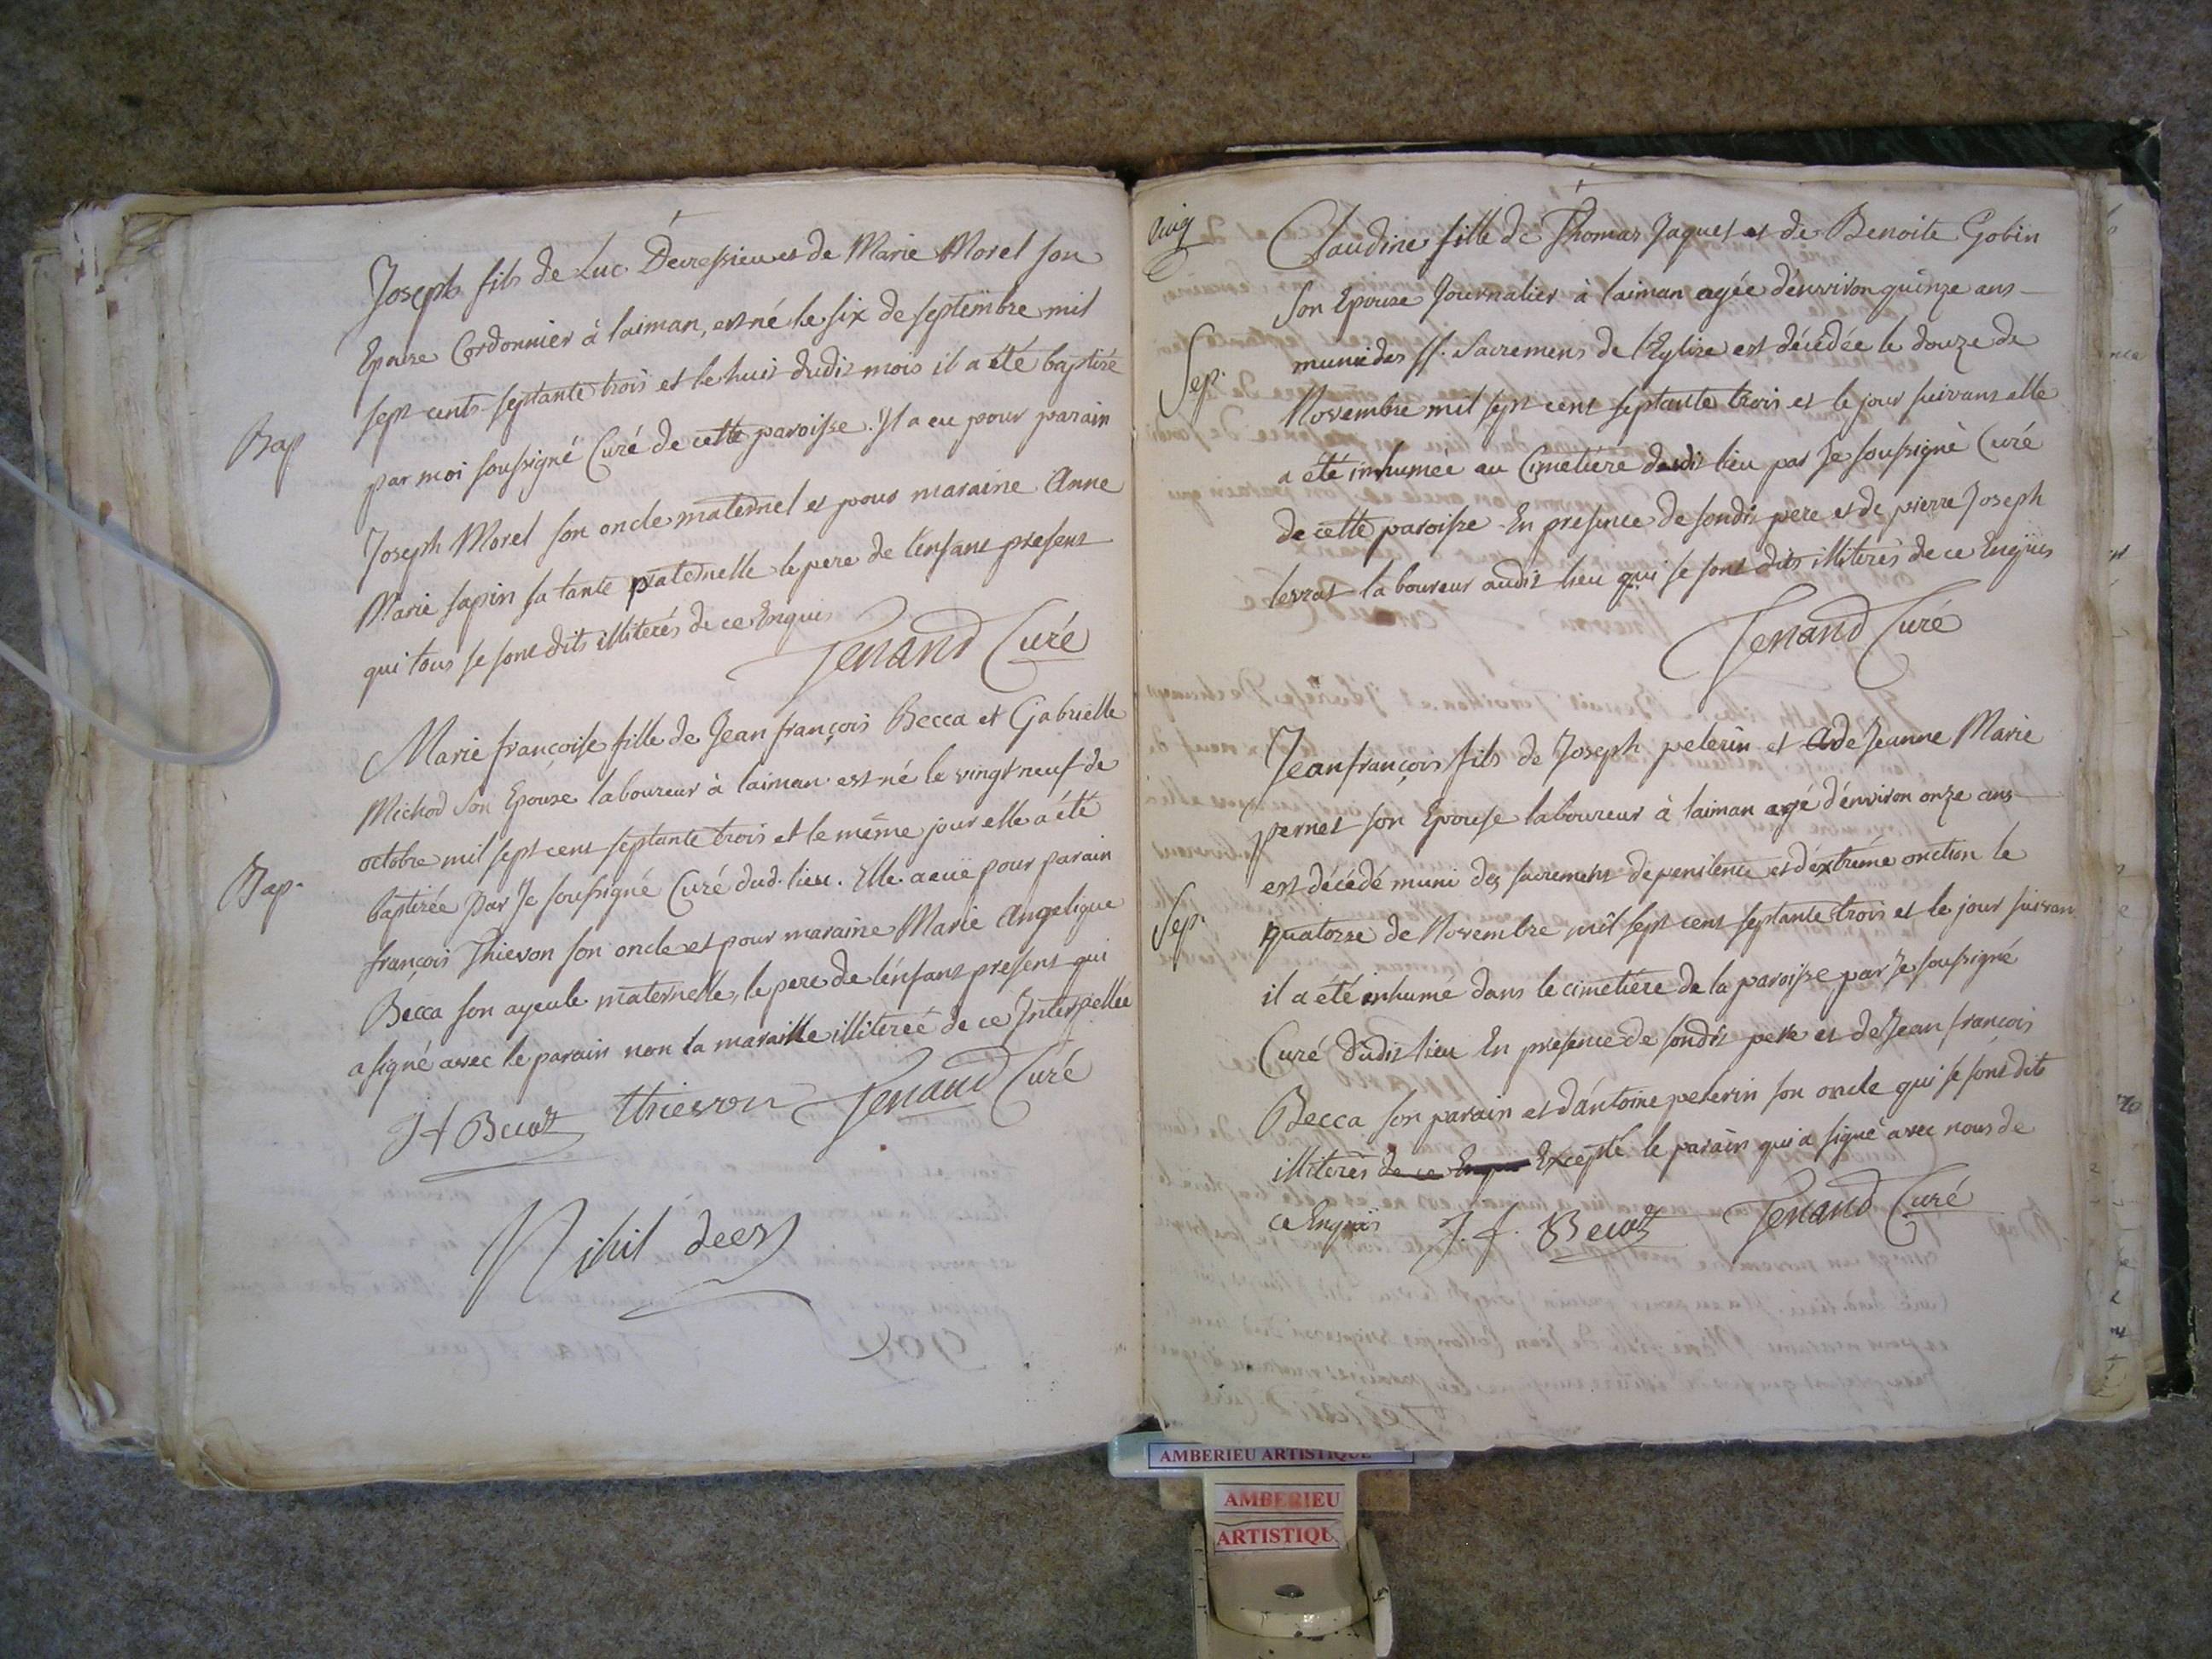 Joseph fils de Luc Devressieu et de Marie Morel son
Epouse Cordonnier à laiman, est né le six de septembre mil
sept cents septante trois et le huit dudit mois il a été baptisé
Bap
par moi soussigné Curé de cette paroisse. Il a eu pour parain
Joseph Morel son oncle maternel et pour maraine Anne
Marie sapin sa tante paternelle le pere de l'enfant present
qui tous se sont dits illiterés de ce Enquis
Tenand Curé
Marie francoise fille de Jean françois Becca et Gabrielle
Michod son Epouse laboureur à laiman est né le vingt neuf de
octobre mil sept cent septante trois et le même jour elle a été
Bap.
baptisée par Je soussigné Curé dud. lieu. Elle a eüe pour parain
françois Thievon son oncle et pour maraine Marie Angelique
Becca son ayeule maternelle, le pere de l'enfant present qui
a signé avec le parain non la maraine illitereé de ce Interpellée
J f Becca thievon Tenand Curé
Nihil deest
Claudine fille de Thomas Jaquet et de Benoite Gobin
son Epouse Journalier à laiman agée d'environ quinze ans
Sep.
munie des SS. Sacremens de l'Eglise est décédée le douze de
Novembre mil sept cent septante trois et le jour suivant elle
a été inhumée au Cimetiére dudit lieu par Je soussigné Curé
de cette paroisse En presence de sondit pere et de pierre Joseph
levrat laboureur audit lieu qui se sont dits illiterés de ce Enquis
Tenand Curé
Jean françois fils de Joseph pelerin et de Jeanne Marie
pernet son Epouse laboureur à laiman agé d'environ onze ans
est décédé muni des sacremens de penitence et d'extrême onction le
Sep.
quatorze de Novembre mil sept cent septante trois et le jour suivant
il a été inhumé dans le cimetiére de la paroisse par Je soussigné
Curé dudit lieu En presence de sondit pere et de Jean francois
Becca son parain et d'antoine pelerin son oncle qui se sont dits
illiterés de ce Enquis Excepté le parain qui a signé avec nous de
ce Enquis J. f. Becca Tenand Curé
AMBERIEU ARTISTIQUE
AMBERIEU
ARTISTIQU